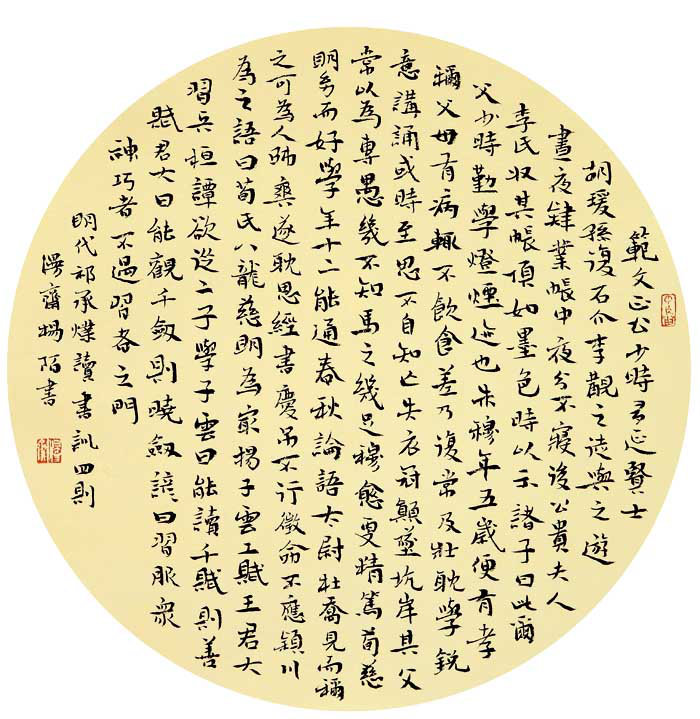 範文正公少時多延賢士
胡瑗孫復石介李覯之徒與之遊
晝夜肄業帳中夜分不寢後公貴夫人
李氏收其帳頂如墨色時以示諸子曰此爾
父少時勤學燈煙迹也朱穆年五歲便有孝
稱父母有病輒不飲食差乃復常及壯耽學銳
意講誦或時至思不自知亡失衣冠顛墜坑岸其父
常以為專愚幾不知馬之幾足穆愈更精篤荀慈
明幼而好學年十二能通春秋論語太尉杜喬見而稱
之可為人師爽遂耽思經書慶吊不行徵命不應穎川
為之語曰荀氏八龍慈明為最揚子雲工賦王君大
習兵桓譚欲從二子學子雲曰能讀千賦則善
賦君大曰能觀千劍則曉劍諺曰習服衆
神巧者不過習者之門
明代祁承㸁讀書訓四則
漫齋楊陌書